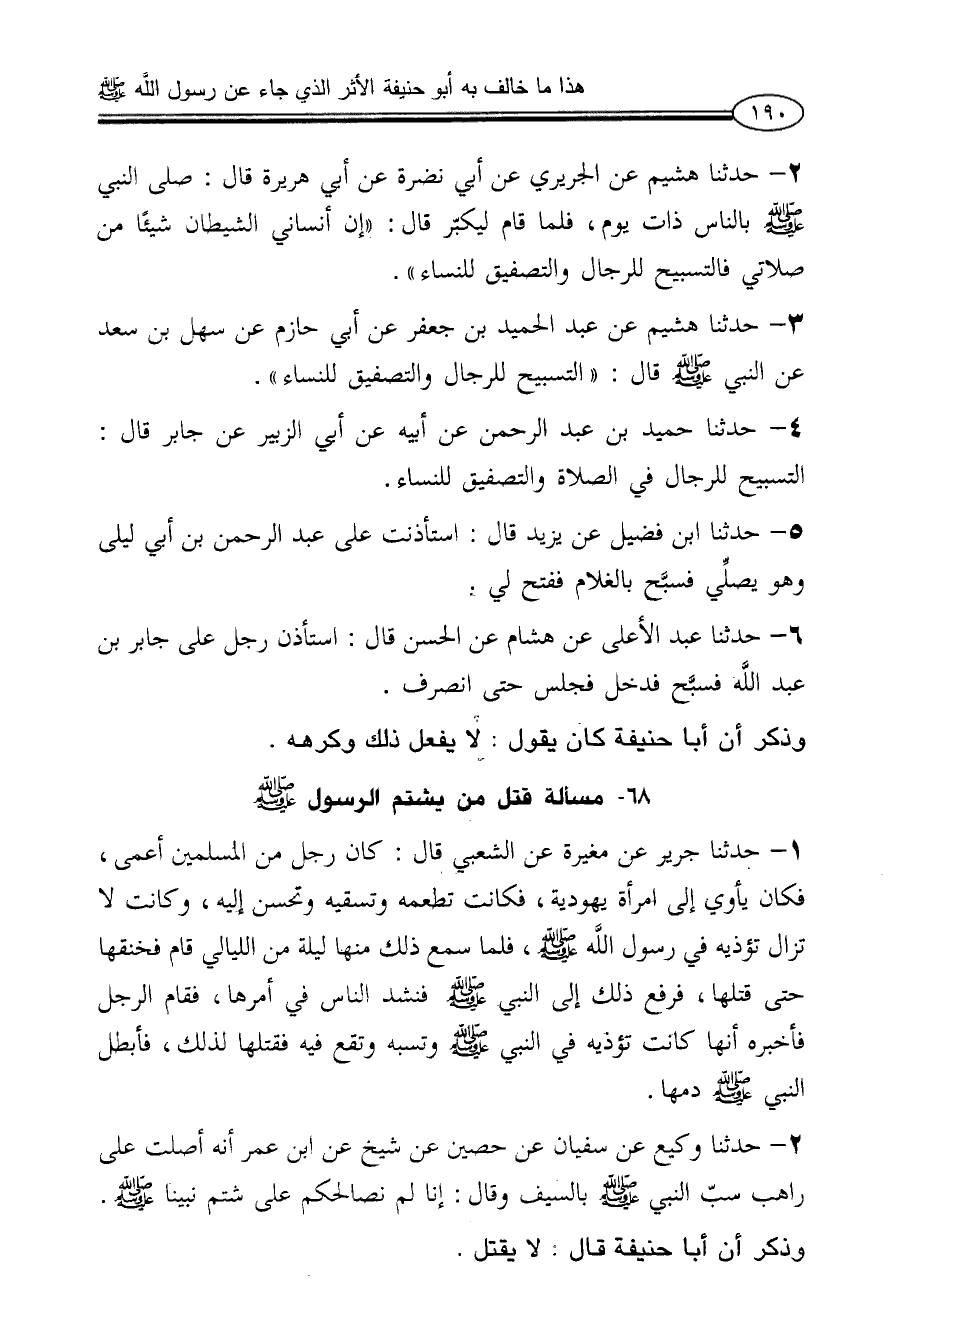 هذا ما خالف به أبو حنيفة الأثر الذي جاء عن رسول الله ﷺ
١٩٠
٢- حدثنا هشيم عن الجريري عن أبي نضرة عن أبي هريرة قال : صلى النبي
ﷺ بالناس ذات يوم، فلما قام ليكبّر قال: «إن أنساني الشيطان شيئًا من
صلاتي فالتسبيح للرجال والتصفيق للنساء» .
٣- حدثنا هشيم عن عبد الحميد بن جعفر عن أبي حازم عن سهل بن سعد
عن النبي ﷺ قال : « التسبيح للرجال والتصفيق للنساء» .
٤- حدثنا حميد بن عبد الرحمن عن أبيه عن أبي الزبير عن جابر قال :
التسبيح للرجال في الصلاة والتصفيق للنساء .
٥- حدثنا ابن فضيل عن يزيد قال : استأذنت على عبد الرحمن بن أبي ليلى
وهو يصلِّي فسبَّح بالغلام ففتح لي .
٦- حدثنا عبد الأعلى عن هشام عن الحسن قال : استأذن رجل على جابر بن
عبد اللَّه فسبَّح فدخل فجلس حتى انصرف .
وذكر أن أبا حنيفة كان يقول : لا يفعل ذلك وكرهه .
٦٨- مسألة قتل من يشتم الرسول ﷺ
١- حدثنا جرير عن مغيرة عن الشعبي قال : كان رجل من المسلمين أعمى،
فكان يأوي إلى امرأة يهودية، فكانت تطعمه وتسقيه وتحسن إليه، وكانت لا
تزال تؤذيه في رسول اللَّه ﷺ، فلما سمع ذلك منها ليلة من الليالي قام فخنقها
حتى قتلها، فرفع ذلك إلى النبي ﷺ فنشد الناس في أمرها، فقام الرجل
فأخبره أنها كانت تؤذيه في النبي ﷺ وتسبه وتقع فيه فقتلها لذلك، فأبطل
النبي ﷺ دمها.
٢- حدثنا وكيع عن سفيان عن حصين عن شيخ عن ابن عمر أنه أصلت على
راهب سبّ النبي ﷺ بالسيف وقال: إنا لم نصالحكم على شتم نبينا ﷺ .
وذكر أن أبا حنيفة قال : لا يقتل .